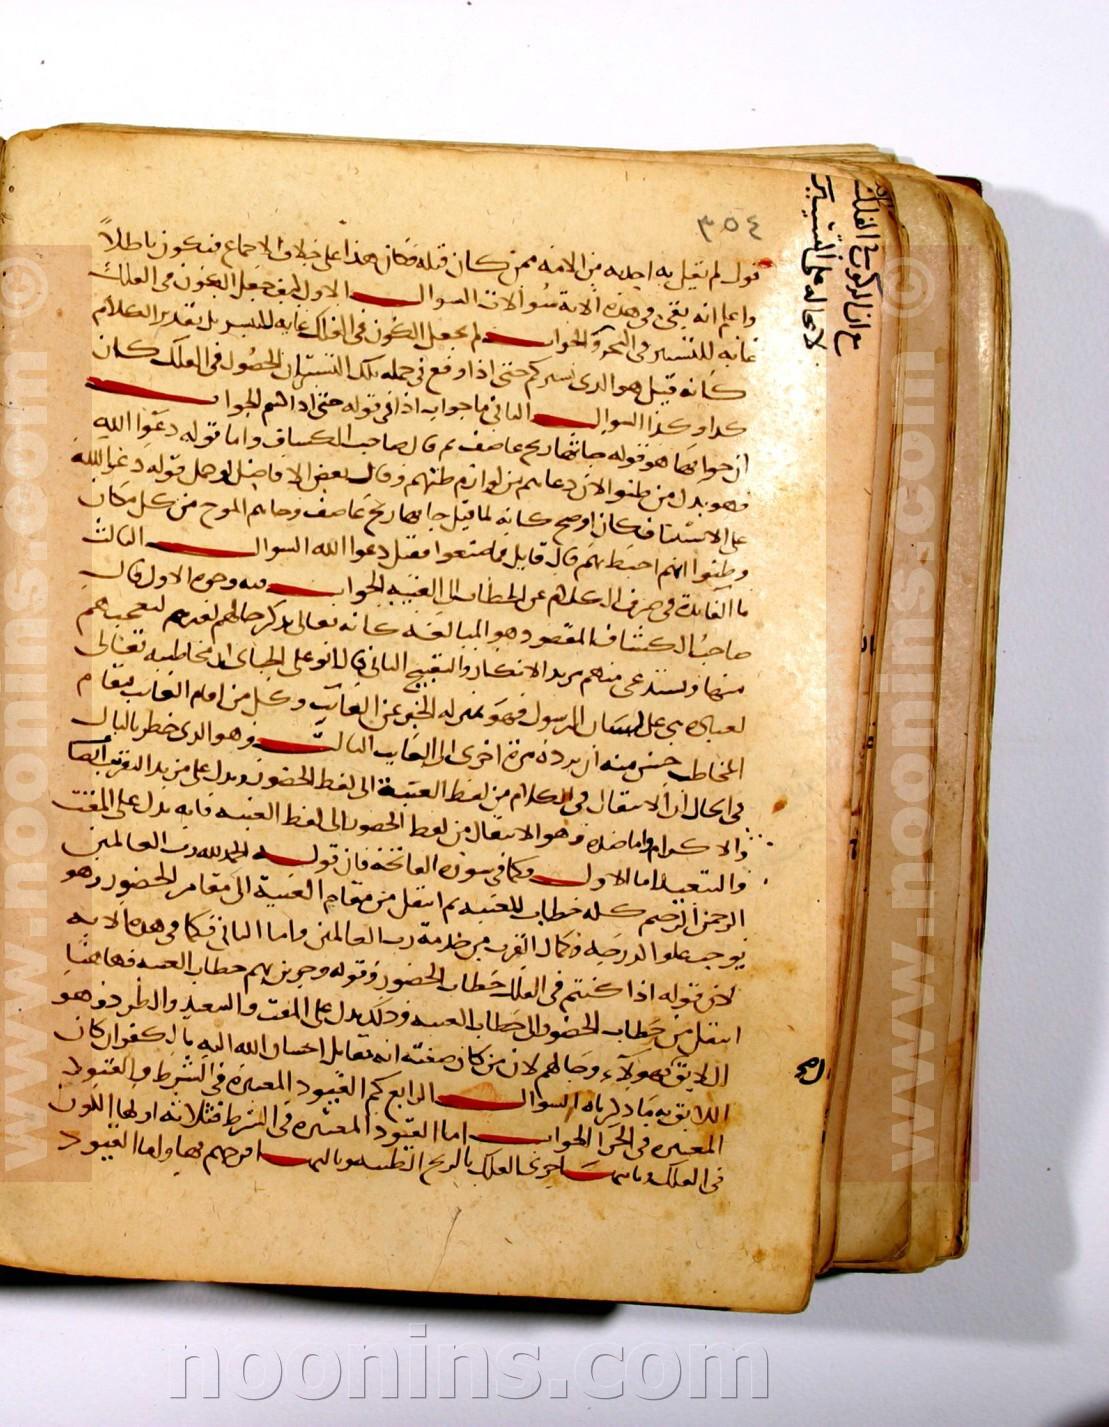 ٣٥٤
قول لم يقل به احد من الامة ممن كان قبله فكان هذا على خلاف الاجماع فيكون باطلاً
واعلم انه بقى فى هذه الاية سوالات السوال الاول كيف جعل الكون فى الفلك
غاية للتسيير فى البحر والجواب لم يجعل الكون فى الفلك غاية للتسيير بل تقدير الكلام
كانه قيل هو الذى يسيركم حتى اذا وقع فى جملة تلك التسييرات الحصول فى الفلك كان
كذا وكذا السوال الثانى ما جواب اذا فى قوله حتى اذا كنتم الجواب
ان جوابها هو قوله جاتها ريح عاصف ثم قال صاحب الكشاف واما قوله دعوا الله
فهو بدل من ظنوا لان دعاهم من لوازم ظنهم وقال بعض الافاضل لو حمل قوله دعوا الله
على الاستئناف كان اوضح كانه لما قيل جاتها ريح عاصف وجاهم الموج من كل مكان
وظنوا انهم احيط بهم قال قايل فما صنعوا فقيل دعوا الله السوال الثالث
ما الفايدة فى صرف الكلام عن الخطاب الى الغيبة الجواب فيه وجوه الاول قال
صاحب الكشاف المقصود هو المبالغة كانه تعالى يذكر حالهم لغيرهم لتعجبهم
منها ويستدعى منهم مزيد الانكار والتقبيح الثانى قال ابو على الجباى ان مخاطبته تعالى
لعباده هى على لسان الرسول فهو بمنزلة الخبر عن الغايب وكل من اقام الغايب مقام
المخاطب حسن منه ان يرده مرة اخرى الى الغايب الثالث وهو الذى خطر بالبال
فى الحال ان الانتقال فى الكلام من لفظ الغيبة الى لفظ الحضور يدل على مزيد التقرب
والاكرام واما ضده وهو الانتقال من لفظ الحضور الى لفظ الغيبة فانه يدل على المقت
والتبعيد اما الاول فكما فى سورة الفاتحة فان قوله الحمد لله رب العالمين
الرحمن الرحيم كله خطاب للغيبة ثم انتقل من مقام الغيبة الى مقام الحضور وهو
يوجب علو الدرجة وكمال القرب من خدمة رب العالمين واما الثانى فكما فى هذه الاية
لان قوله اذا كنتم فى الفلك خطاب الحضور وقوله وجرين بهم خطاب الغيبة فهاهنا
انتقل من خطاب الحضور الى خطاب الغيبة وذلك يدل على المقت والتبعيد والطرد وهو
اللايق بهولاء وحالهم لان من كان صفته انه يقابل احسان الله اليه بالكفران كان
اللايق به ما ذكرناه السوال الرابع كم القيود المعتبرة فى الشرط والقيود
المعتبرة فى الجزا الجواب اما القيود المعتبرة فى الشرط فثلاثة اولها الكون
فى الفلك وثانيها جرى الفلك بالريح الطيبة وثالثها فرحهم بها واما القيود
مع ان الركوب فى الفلك
لا محاله على التسيير